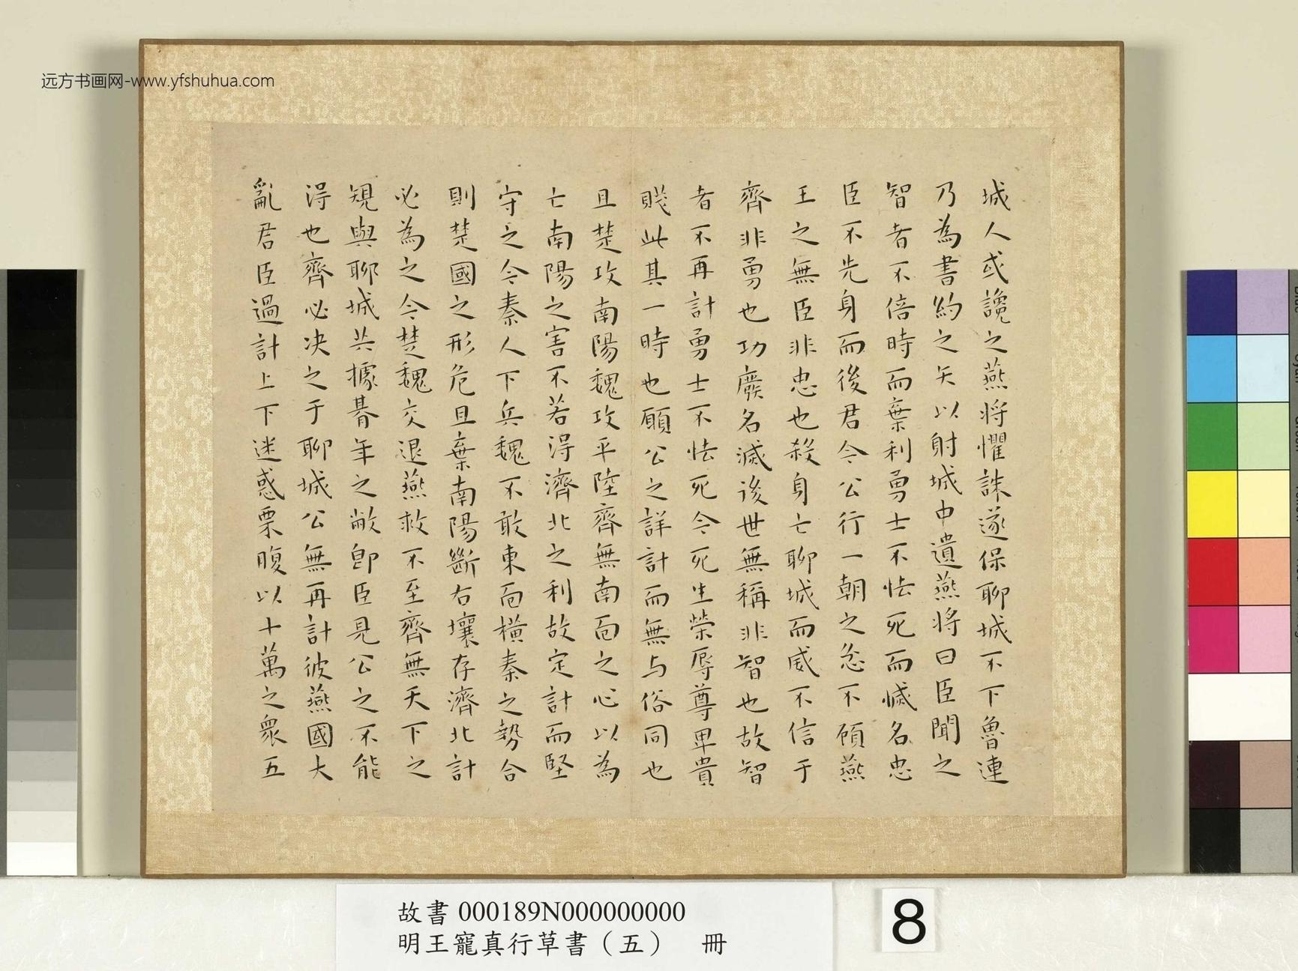 远方书画网-www.yfshuhua.com
城人或讒之燕将懼誅遂保聊城不下魯連
乃為書約之矢以射城中遺燕将曰臣聞之
智者不倍時而棄利勇士不怯死而滅名忠
臣不先身而後君今公行一朝之忿不顧燕
王之無臣非忠也殺身亡聊城而威不信于
齊非勇也功廢名滅後世無稱非智也故智
者不再計勇士不怯死今死生榮辱尊卑貴
賤此其一時也願公之詳計而無与俗同也
且楚攻南陽魏攻平陸齊無南面之心以為
亡南陽之害不若得濟北之利故定計而堅
守之今秦人下兵魏不敢東面橫秦之勢合
則楚國之形危且棄南陽斷右壤存濟北計
必為之今楚魏交退燕救不至齊無天下之
規與聊城共據朞年之敝即臣見公之不能
得也齊必决之于聊城公無再計彼燕國大
亂君臣過計上下迷惑栗腹以十萬之眾五
故書 000189N000000000
明王寵真行草書（五） 冊
8